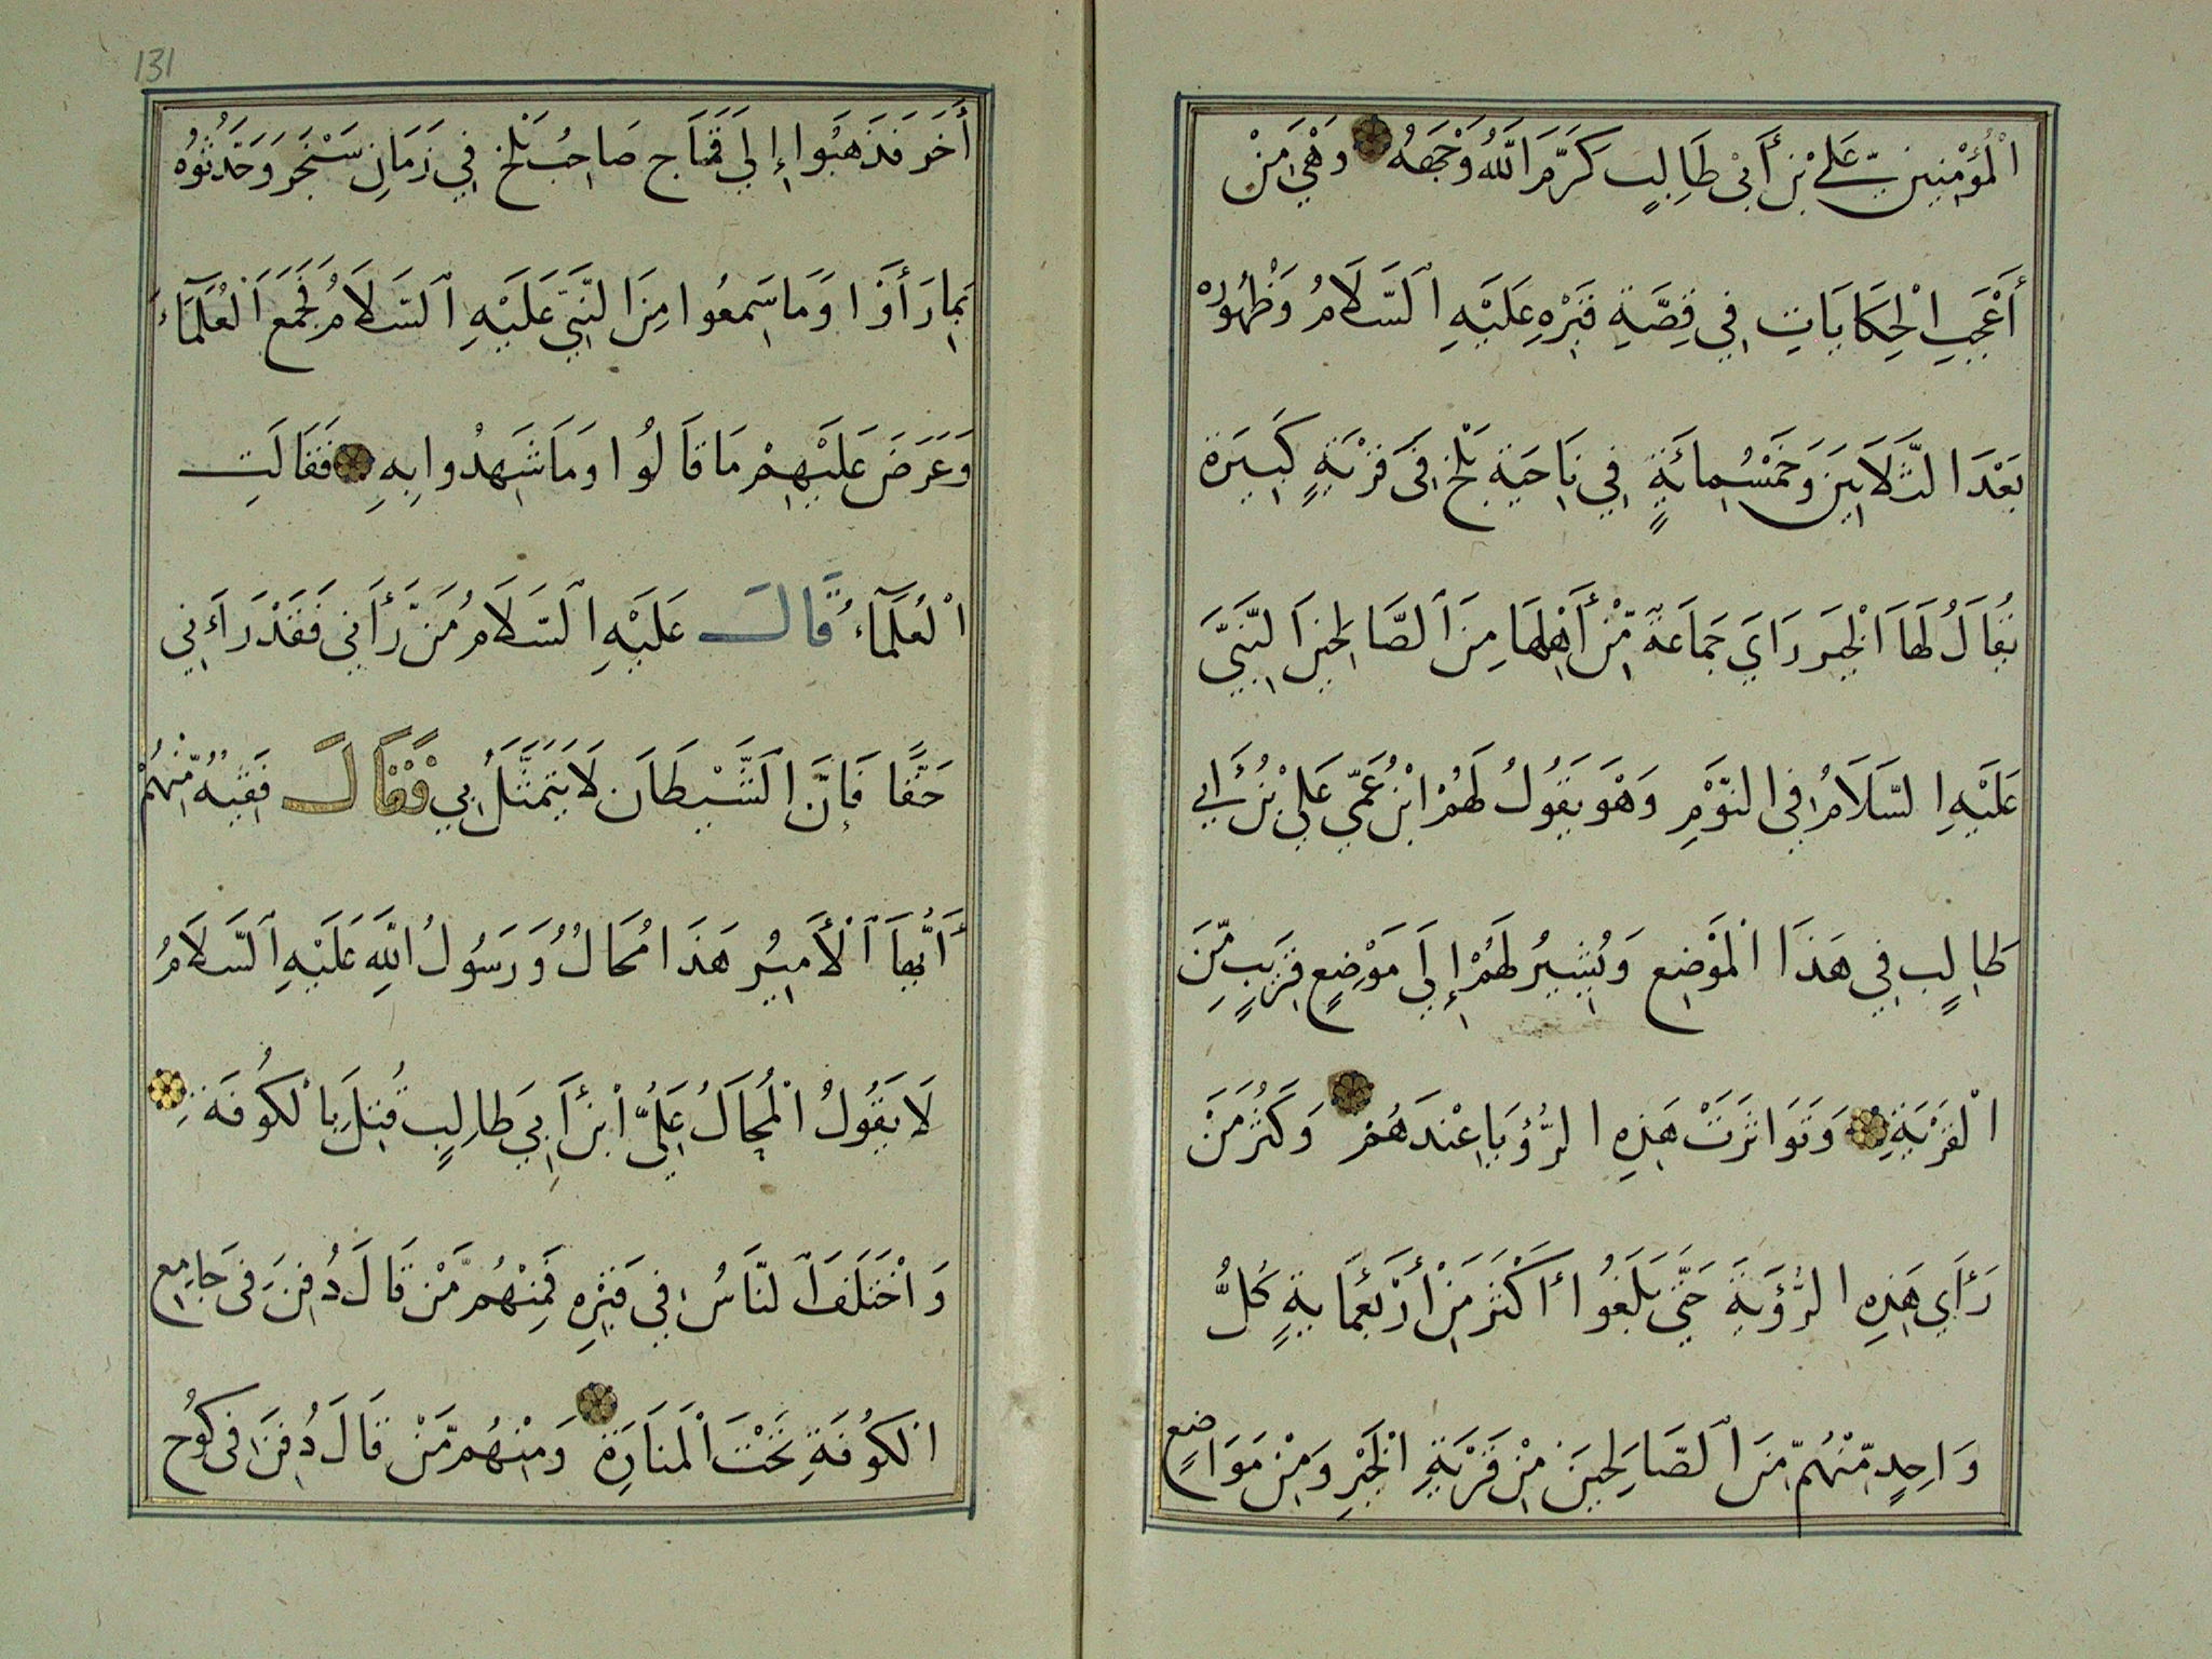 الْمُؤْمِنِينَ عَلِيِّ بْنِ أَبِي طَالِبٍ كَرَّمَ اللَّهُ وَجْهَهُ وَهْيَ مِنْ
أَعْجَبِ الْحِكَايَاتِ فِي قِصَّةِ قَبْرِهِ عَلَيْهِ السَّلَامُ وَظُهُورُهُ
بَعْدَ الثَّلَاثِينَ وَخَمْسُمِائَةٍ فِي نَاحِيَةِ بَلْخِ فِي قَرْيَةٍ كَبِيرَةٍ
يُقَالُ لَهَا الْخَيْر رَاَي جَمَاعَةٌ مِّنْ أَهْلِهَا مِنَ الصَّالِحِينَ النَّبِيَّ
عَلَيْهِ السَّلَامُ فِي النَّوْمِ وَهْوَ يَقُولُ لَهُمْ ابْنُ عَمِّي عَلِيْ بْنُ أَبِي
طَالِبٍ فِي هَذَا الْمَوْضِعِ وَيُشِيرُ لَهُمْ إِلَي مَوْضِعٍ قَرِيبٍ مِّنَ
الْقَرْيَةِ وَتَوَاتَرَتْ هَذِهِ الرُّؤيَا عِنْدَهُمْ وَكَثُرَ مَنْ
رَأَي هَذِهِ الرُّؤيَةَ حَتَّي بَلَغُوا أَكْثَرَ مِنْ أَرْبَعُمِايةٍ كُلُّ
وَاحِدٍ مِّنْهُمْ مِّنَ الصَّالِحِينَ مِنْ قَرْيَةِ الْخَيْرِ وَمِنْ مَوَاضِعٍ
131
أُخَرَ فَذَهَبُوا إِلَي قَمَاج صَاحِبُ بَلْخ فِي زَمَانِ سَنْجَر وَحَدَّثُوُه
بِمَا رَأَوْا وَمَا سَمِعُوا مِنَ النَّبِيِّ عَلَيْهِ السَّلَامُ فَجَمَعَ الْعُلَمَآءَ
وَعَرَضَ عَلَيْهِمْ مَا قَالُوا وَمَا شَهِدُوا بِهِ فَقَالَتِ
الْعُلَمَآءُ قَالَ عَلَيْهِ السَّلَامُ مَنْ رَّأَنِي فَقَدْ رَاَءنِي
حَقًّا فَإِنَّ الشَّيْطَانَ لَا يَتَمَثَّلُ بِي فَقَالَ فَقِيهُ مِّنْهُمْ
أَيُّهَا الْأَمِيرُ هَذَا مُحَالُ وَرَسُولُ اللَّهِ عَلَيْهِ السَّلَامُ
لَا يَقُولُ الْمُحَالُ عَلِيُّ ابْنُ أَبِي طَالِبٍ قُتِلَ بِالْكُوفَةِ
وَاخْتَلَفَ النَّاسُ فِي قَبْرِهِ فَمِنْهُمْ مَّنْ قَالَ دُفِنَ فِي جَامِعِ
الكُوفَةِ تَحْتَ الْمَنَارَةِ وَمِنْهُمْ مَّنْ قَالَ دُفِنَ فِي كُوُخ